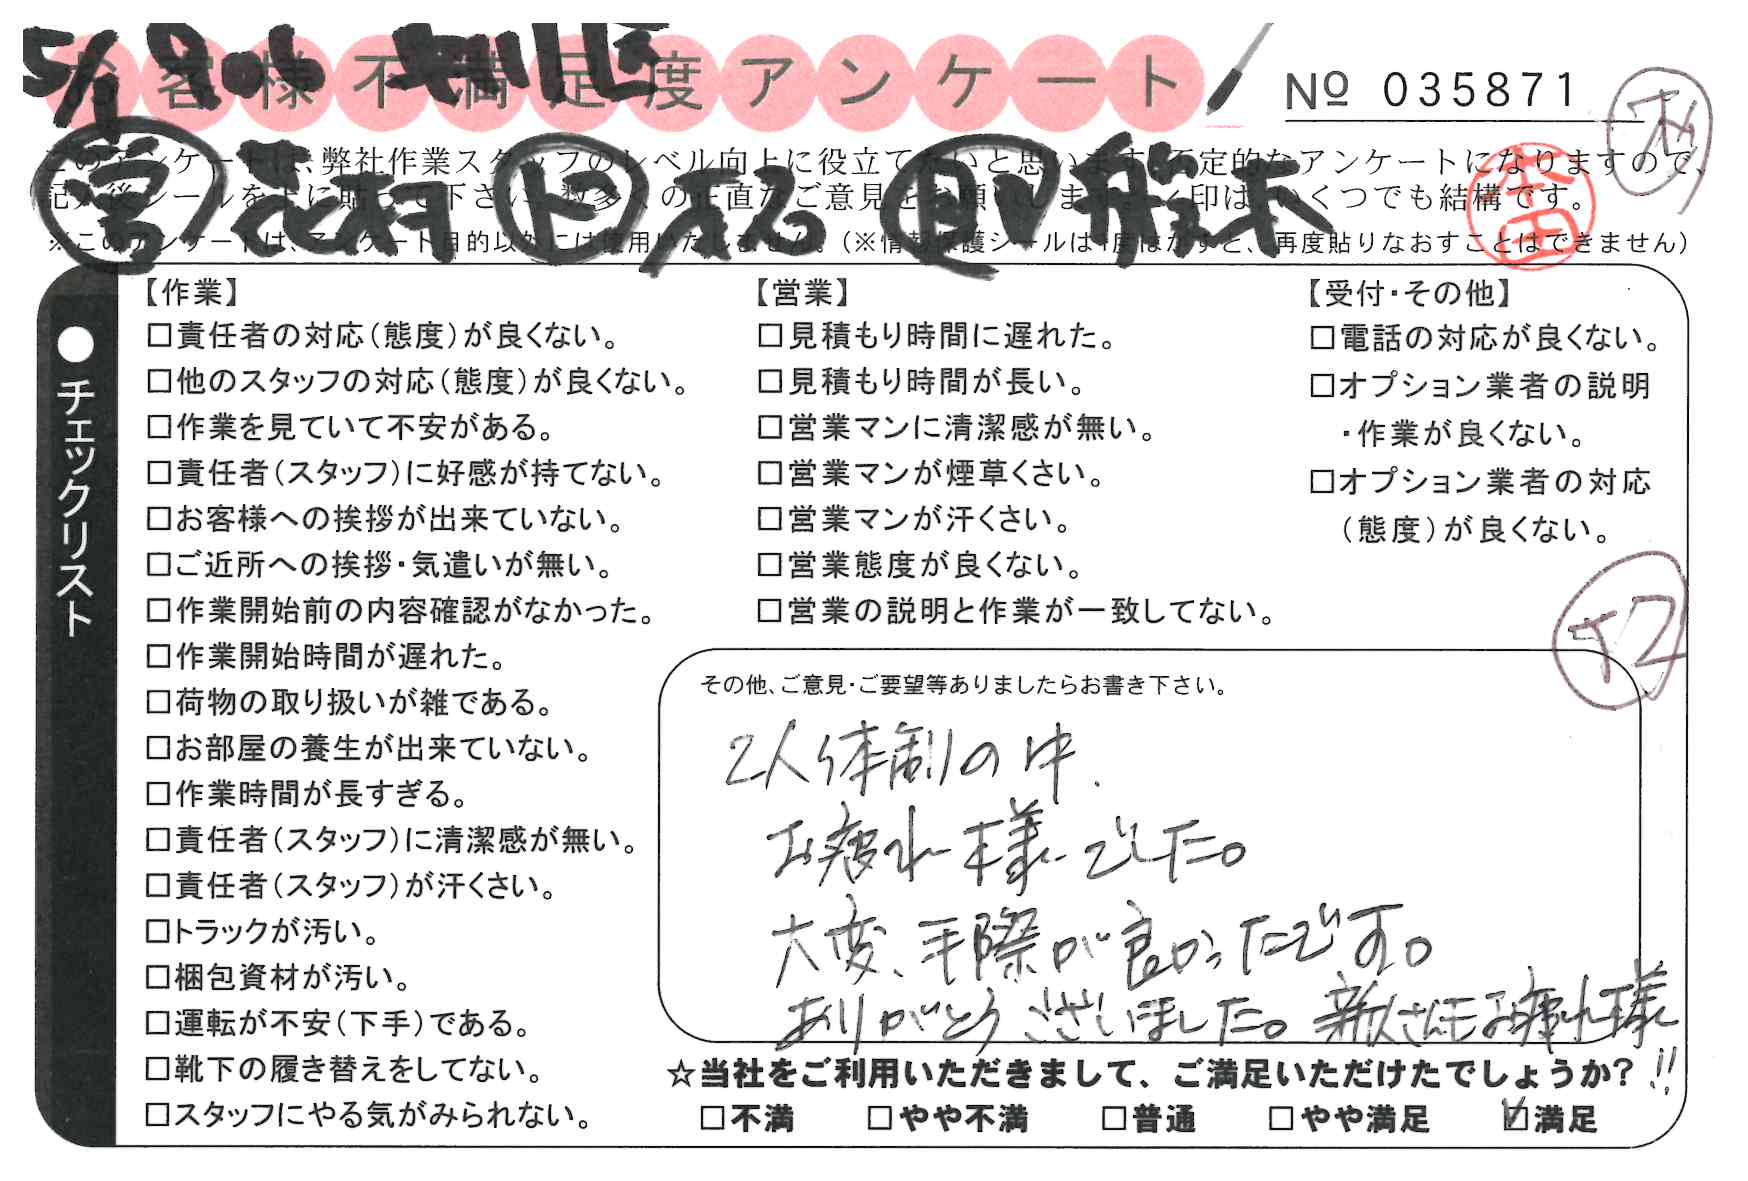 5/1
お客様不満足度アンケート
№ 035871
このアンケートは、弊社作業スタッフのレベル向上に役立てたいと思います。否定的なアンケートになりますので、
記入後シールを上に貼って下さい。数多くの正直なご意見をお願いします。✓印は、いくつでも結構です。
※このアンケートは、アンケート目的以外には使用いたしません。(※情報保護シールは1度はがすと、再度貼りなおすことはできません)
営 花村 ド 船木
●チェックリスト
【作業】
□責任者の対応(態度)が良くない。
□他のスタッフの対応(態度)が良くない。
□作業を見ていて不安がある。
□責任者(スタッフ)に好感が持てない。
□お客様への挨拶が出来ていない。
□ご近所への挨拶・気遣いが無い。
□作業開始前の内容確認がなかった。
□作業開始時間が遅れた。
□荷物の取り扱いが雑である。
□お部屋の養生が出来ていない。
□作業時間が長すぎる。
□責任者(スタッフ)に清潔感が無い。
□責任者(スタッフ)が汗くさい。
□トラックが汚い。
□梱包資材が汚い。
□運転が不安(下手)である。
□靴下の履き替えをしてない。
□スタッフにやる気がみられない。
【営業】
□見積もり時間に遅れた。
□見積もり時間が長い。
□営業マンに清潔感が無い。
□営業マンが煙草くさい。
□営業マンが汗くさい。
□営業態度が良くない。
□営業の説明と作業が一致してない。
【受付・その他】
□電話の対応が良くない。
□オプション業者の説明
・作業が良くない。
□オプション業者の対応
(態度)が良くない。
その他、ご意見・ご要望等ありましたらお書き下さい。
2人体制の中、
お疲れ様でした。
大変、手際が良かったです。
ありがとうございました。新人さんもお疲れ様
!!
☆当社をご利用いただきまして、ご満足いただけたでしょうか?
□不満 □やや不満 □普通 □やや満足 ☑満足